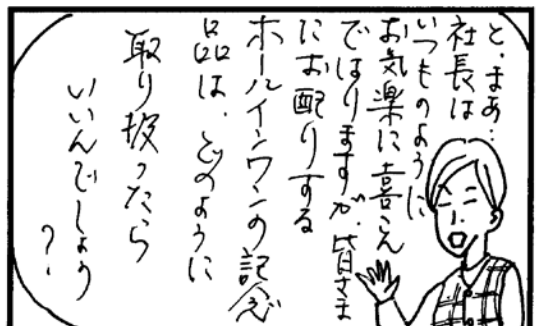 と、まあ…
社長は
いつものように
お気楽に喜こん
ではりますが、皆さま
にお配りする
ホールインワンの記念
品は、どのように
取り扱ったら
いいんでしょう
?